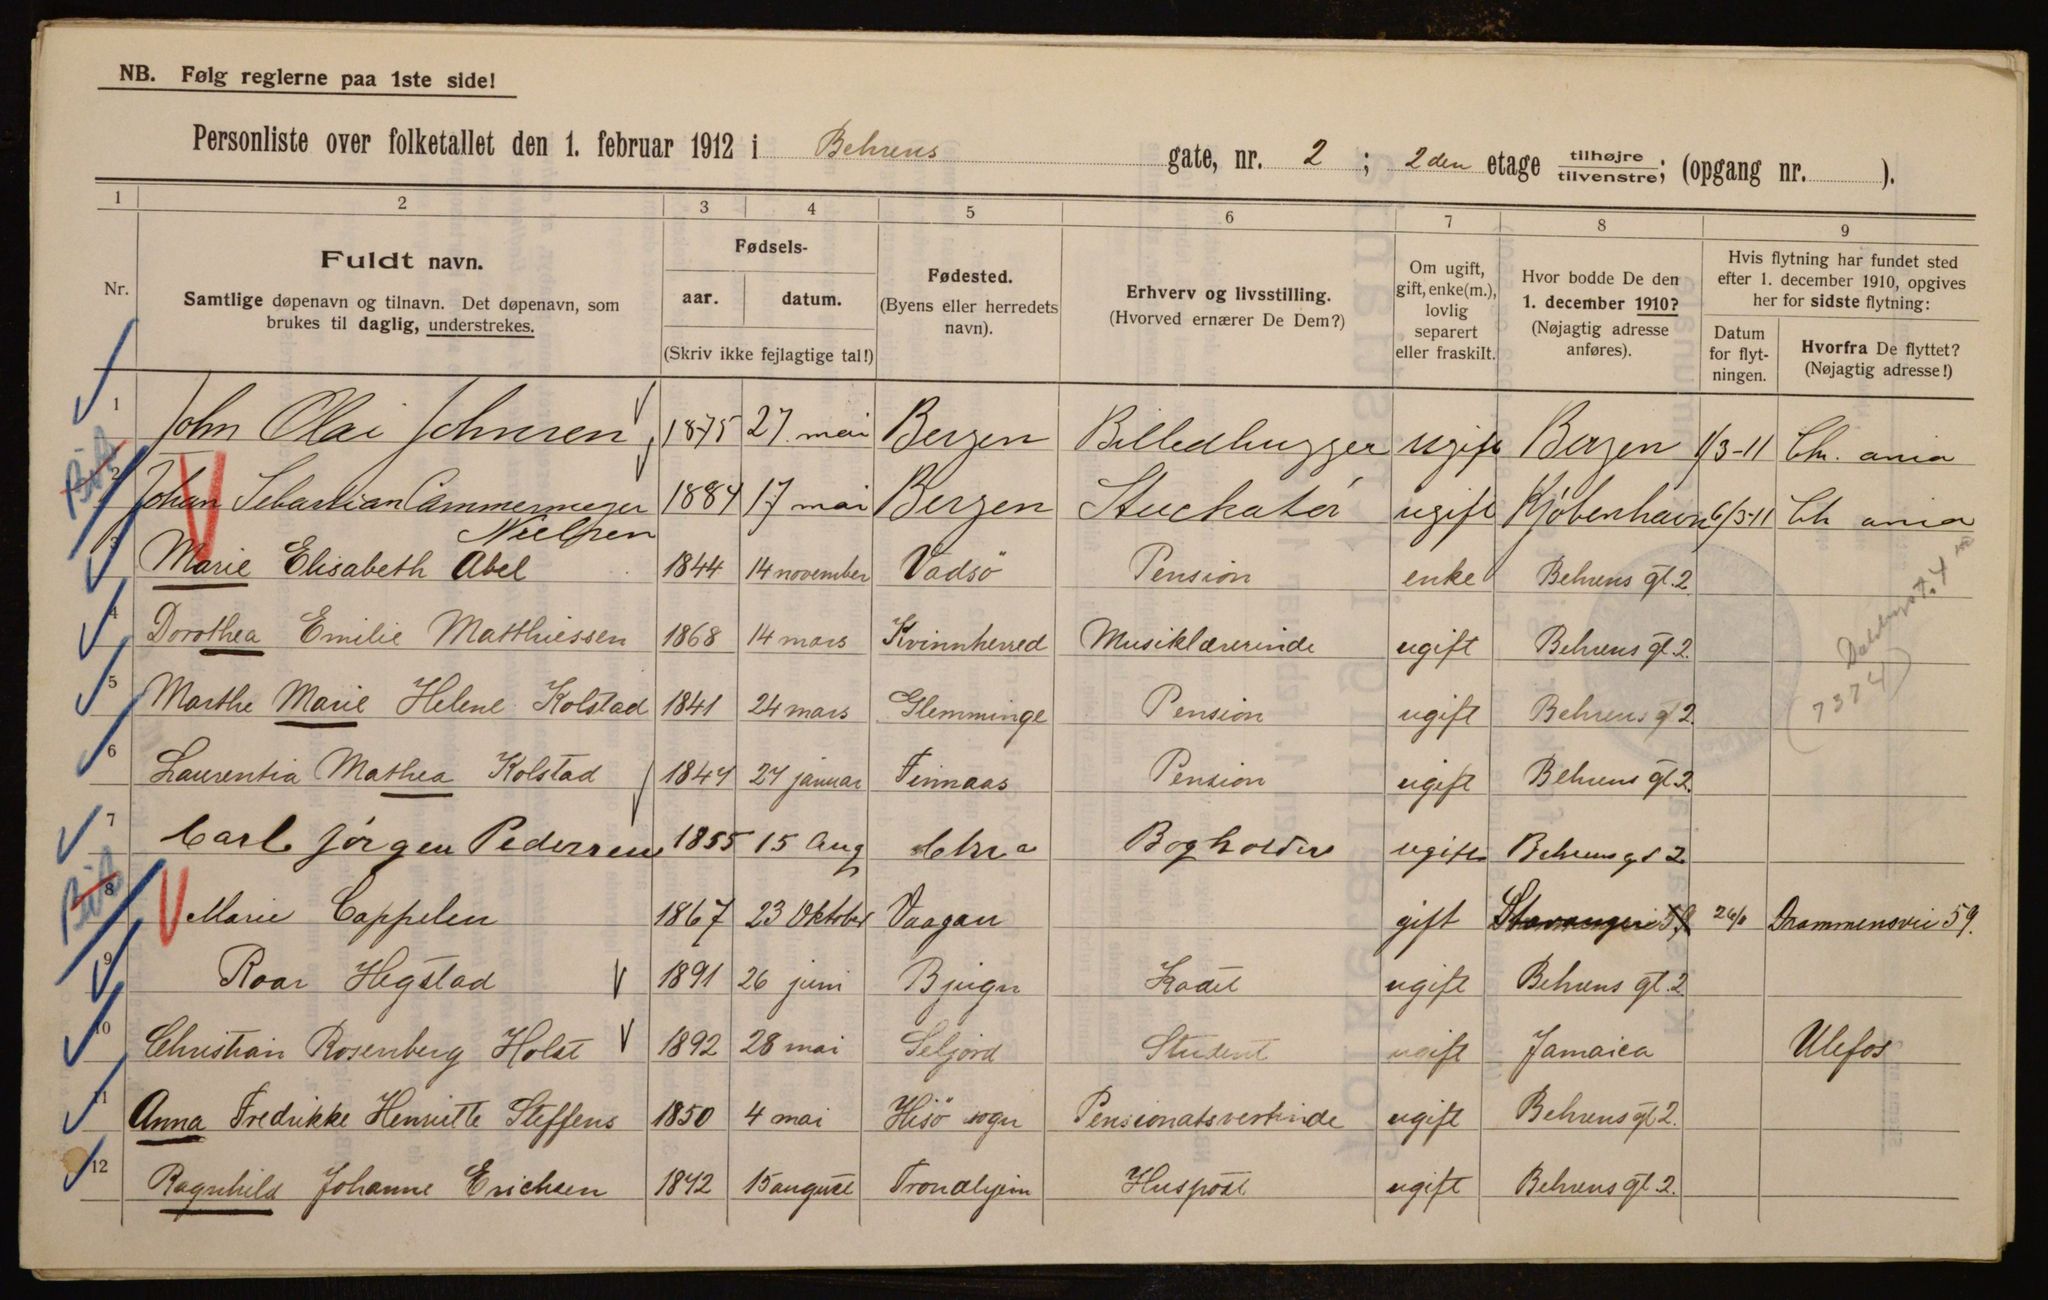 NB. Følg reglerne paa 1ste side!
Personliste over folketallet den 1. februar 1912 i Behrens gate, nr. 2 ; 2den etage tilhøjre tilvenstre; (opgang nr. ).
1 2 3 4 5 6 7 8 9
Nr.
Fuldt navn.
Samtlige døpenavn og tilnavn. Det døpenavn, som
brukes til daglig, understrekes.
Fødsels-
aar. datum.
(Skriv ikke fejlagtige tal!)
Fødested.
(Byens eller herredets
navn).
Erhverv og livsstilling.
(Hvorved ernærer De Dem?)
Om ugift,
gift, enke(m.),
lovlig
separert
eller fraskilt.
Hvor bodde De den
1. december 1910?
(Nøjagtig adresse
anføres).
Hvis flytning har fundet sted
efter 1. december 1910, opgives
her for sidste flytning:
Datum
for flyt-
ningen.
Hvorfra De flyttet?
(Nøjagtig adresse!)
1 John Olai Johnsen 1875 27. mai Bergen Billedhugger ugift Bergen 1/3-11 Chr. ania
2 Johan Sebastian Cammermeyer 1884 17 mai Bergen Stuckatør ugift Kjøbenhavn 6/3-11 Ch ania
Nielsen
3 Marie Elisabeth Abel 1844 14 november Vadsö Pension enke Behrens gt. 2
4 Dorothea Emilie Matthiessen 1868 14 mars Kvinnherred Musiklærerinde ugift Behrens gt. 2.
5 Marthe Marie Helene Kolstad 1841 24 mars Glemminge Pension ugift Behrens gt 2.
(7374)
6 Laurentia Mathea Kolstad 1847 27 januar Finnaas Pension ugift Behrens gt 2.
7 Carl Jørgen Pedersen 1855 15 Aug Chra Bogholder ugift Behrens gt 2
8 Marie Cappelen 1867 23 Oktober Vaagan gift Drammensvei 59.
9 Roar Hegstad 1891 26 juni Bjugn Kadet ugift Behrens gt. 2
10 Christian Rosenberg Holst 1892 28 mai Seljord Student ugift Jamaica Ulefos
11 Anna Fredrikke Henriette Steffens 1850 4 mai Hisö sogn Pensionatsvertinde ugift Behrens gt 2.
12 Ragnhild Johanne Erichsen 1842 15 august Trondhjem Huspost ugift Behrens gt. 2.